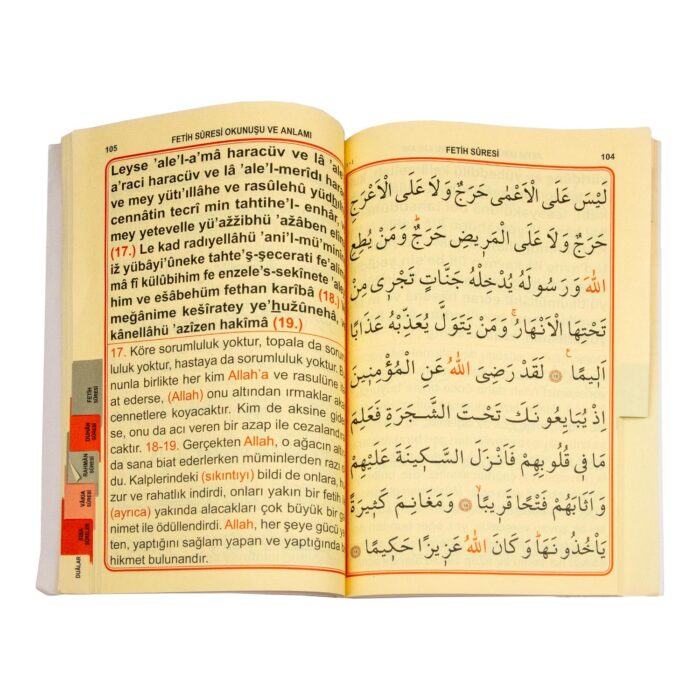 105
FETİH SÛRESİ OKUNUŞU VE ANLAMI
Leyse 'ale'l-a'mâ haracüv ve lâ 'ale
a'raci haracüv ve lâ 'ale'l-merîdı hara
ve mey yütı'ıllâhe ve rasûlehû yüdhı
cennâtin tecrî min tahtihe'l- enhâr,
mey yetevelle yü'ažžibhü 'ažâben elî
(17.) Le kad radıyellâhü 'ani'l-mü'minî
iž yübâyi'ûneke tahte'ş-şecerati fe'ali
mâ fî külûbihim fe enzele's-sekînete 'ale
him ve ešâbehüm fethan karîbâ (18.)
meğânime kešîratey ye'hužûnehâ,
kânellâhü 'azîzen hakîmâ (19.)
17. Köre sorumluluk yoktur, topala da sorum
luluk yoktur, hastaya da sorumluluk yoktur. B
nunla birlikte her kim Allah'a ve rasulüne i
at ederse, (Allah) onu altından ırmaklar aka
cennetlere koyacaktır. Kim de aksine gide
se, onu da acı veren bir azap ile cezalandıra
caktır. 18-19. Gerçekten Allah, o ağacın altın
da sana biat ederlerken müminlerden razı o
du. Kalplerindeki (sıkıntıyı) bildi de onlara, hu
zur ve rahatlık indirdi, onları yakın bir fetih
(ayrıca) yakında alacakları çok büyük bir ga
nimet ile ödüllendirdi. Allah, her şeye gücü ye
ten, yaptığını sağlam yapan ve yaptığında bi
hikmet bulunandır.
FETİH
SÛRESİ
DUHÂN
SÛRESİ
RAHMÂN
SÛRESİ
VÂKIA
SÛRESİ
KISA
SÛRELER
DUÂLAR
FETİH SÛRESİ
104
لَيْسَ عَلَى الْاَعْمٰى حَرَجٌ وَلَا عَلَى الْاَعْرَجِ
حَرَجٌ وَلَا عَلَى الْمَرٖيضِ حَرَجٌؕ وَمَنْ يُطِعِ
اللّٰهَ وَرَسُولَهُ يُدْخِلْهُ جَنَّاتٍ تَجْرٖى مِنْ
تَحْتِهَا الْاَنْهَارُۚ وَمَنْ يَتَوَلَّ يُعَذِّبْهُ عَذَابًا
اَلٖيمًا ﴿١٧﴾ لَقَدْ رَضِىَ اللّٰهُ عَنِ الْمُؤْمِنٖينَ
اِذْ يُبَايِعُونَكَ تَحْتَ الشَّجَرَةِ فَعَلِمَ
مَا فٖى قُلُوبِهِمْ فَاَنْزَلَ السَّكٖينَةَ عَلَيْهِمْ
وَاَثَابَهُمْ فَتْحًا قَرٖيبًاۙ ﴿١٨﴾ وَمَغَانِمَ كَثٖيرَةً
يَأْخُذُونَهَاؕ وَكَانَ اللّٰهُ عَزٖيزًا حَكٖيمًا ﴿١٩﴾